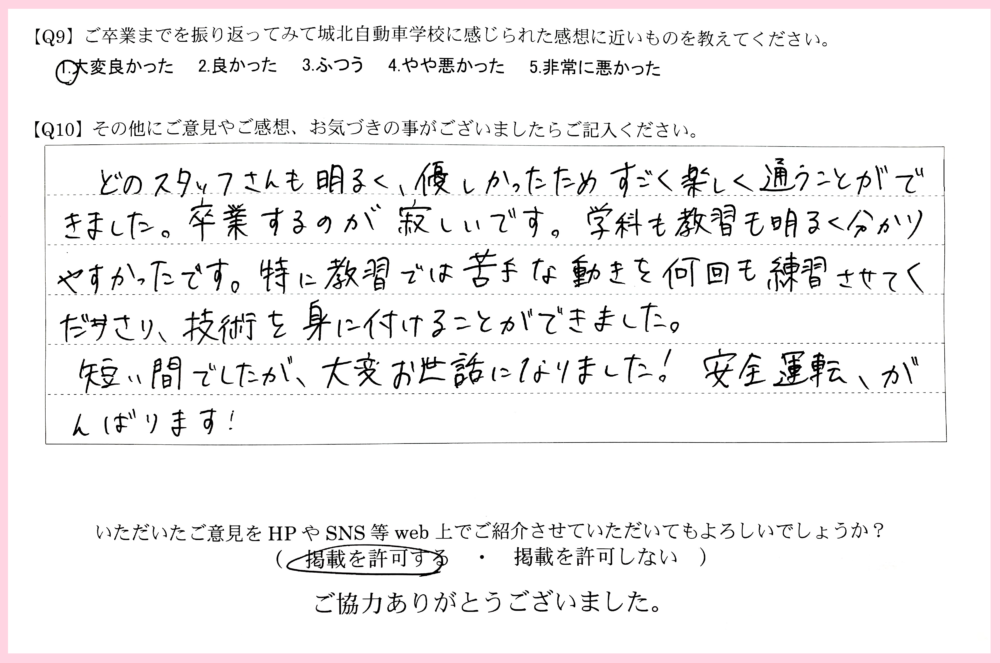 【Q9】ご卒業までを振り返ってみて城北自動車学校に感じられた感想に近いものを教えてください。
1.大変良かった 2.良かった 3.ふつう 4.やや悪かった 5.非常に悪かった
【Q10】その他にご意見やご感想、お気づきの事がございましたらご記入ください。
どのスタッフさんも明るく、優しかったためすごく楽しく通うことがで
きました。卒業するのが寂しいです。学科も教習も明るく分かり
やすかったです。特に教習では苦手な動きを何回も練習させてく
ださり、技術を身に付けることができました。
短い間でしたが、大変お世話になりました!安全運転、が
んばります!
いただいたご意見をHPやSNS等web上でご紹介させていただいてもよろしいでしょうか?
( 掲載を許可する ・ 掲載を許可しない )
ご協力ありがとうございました。